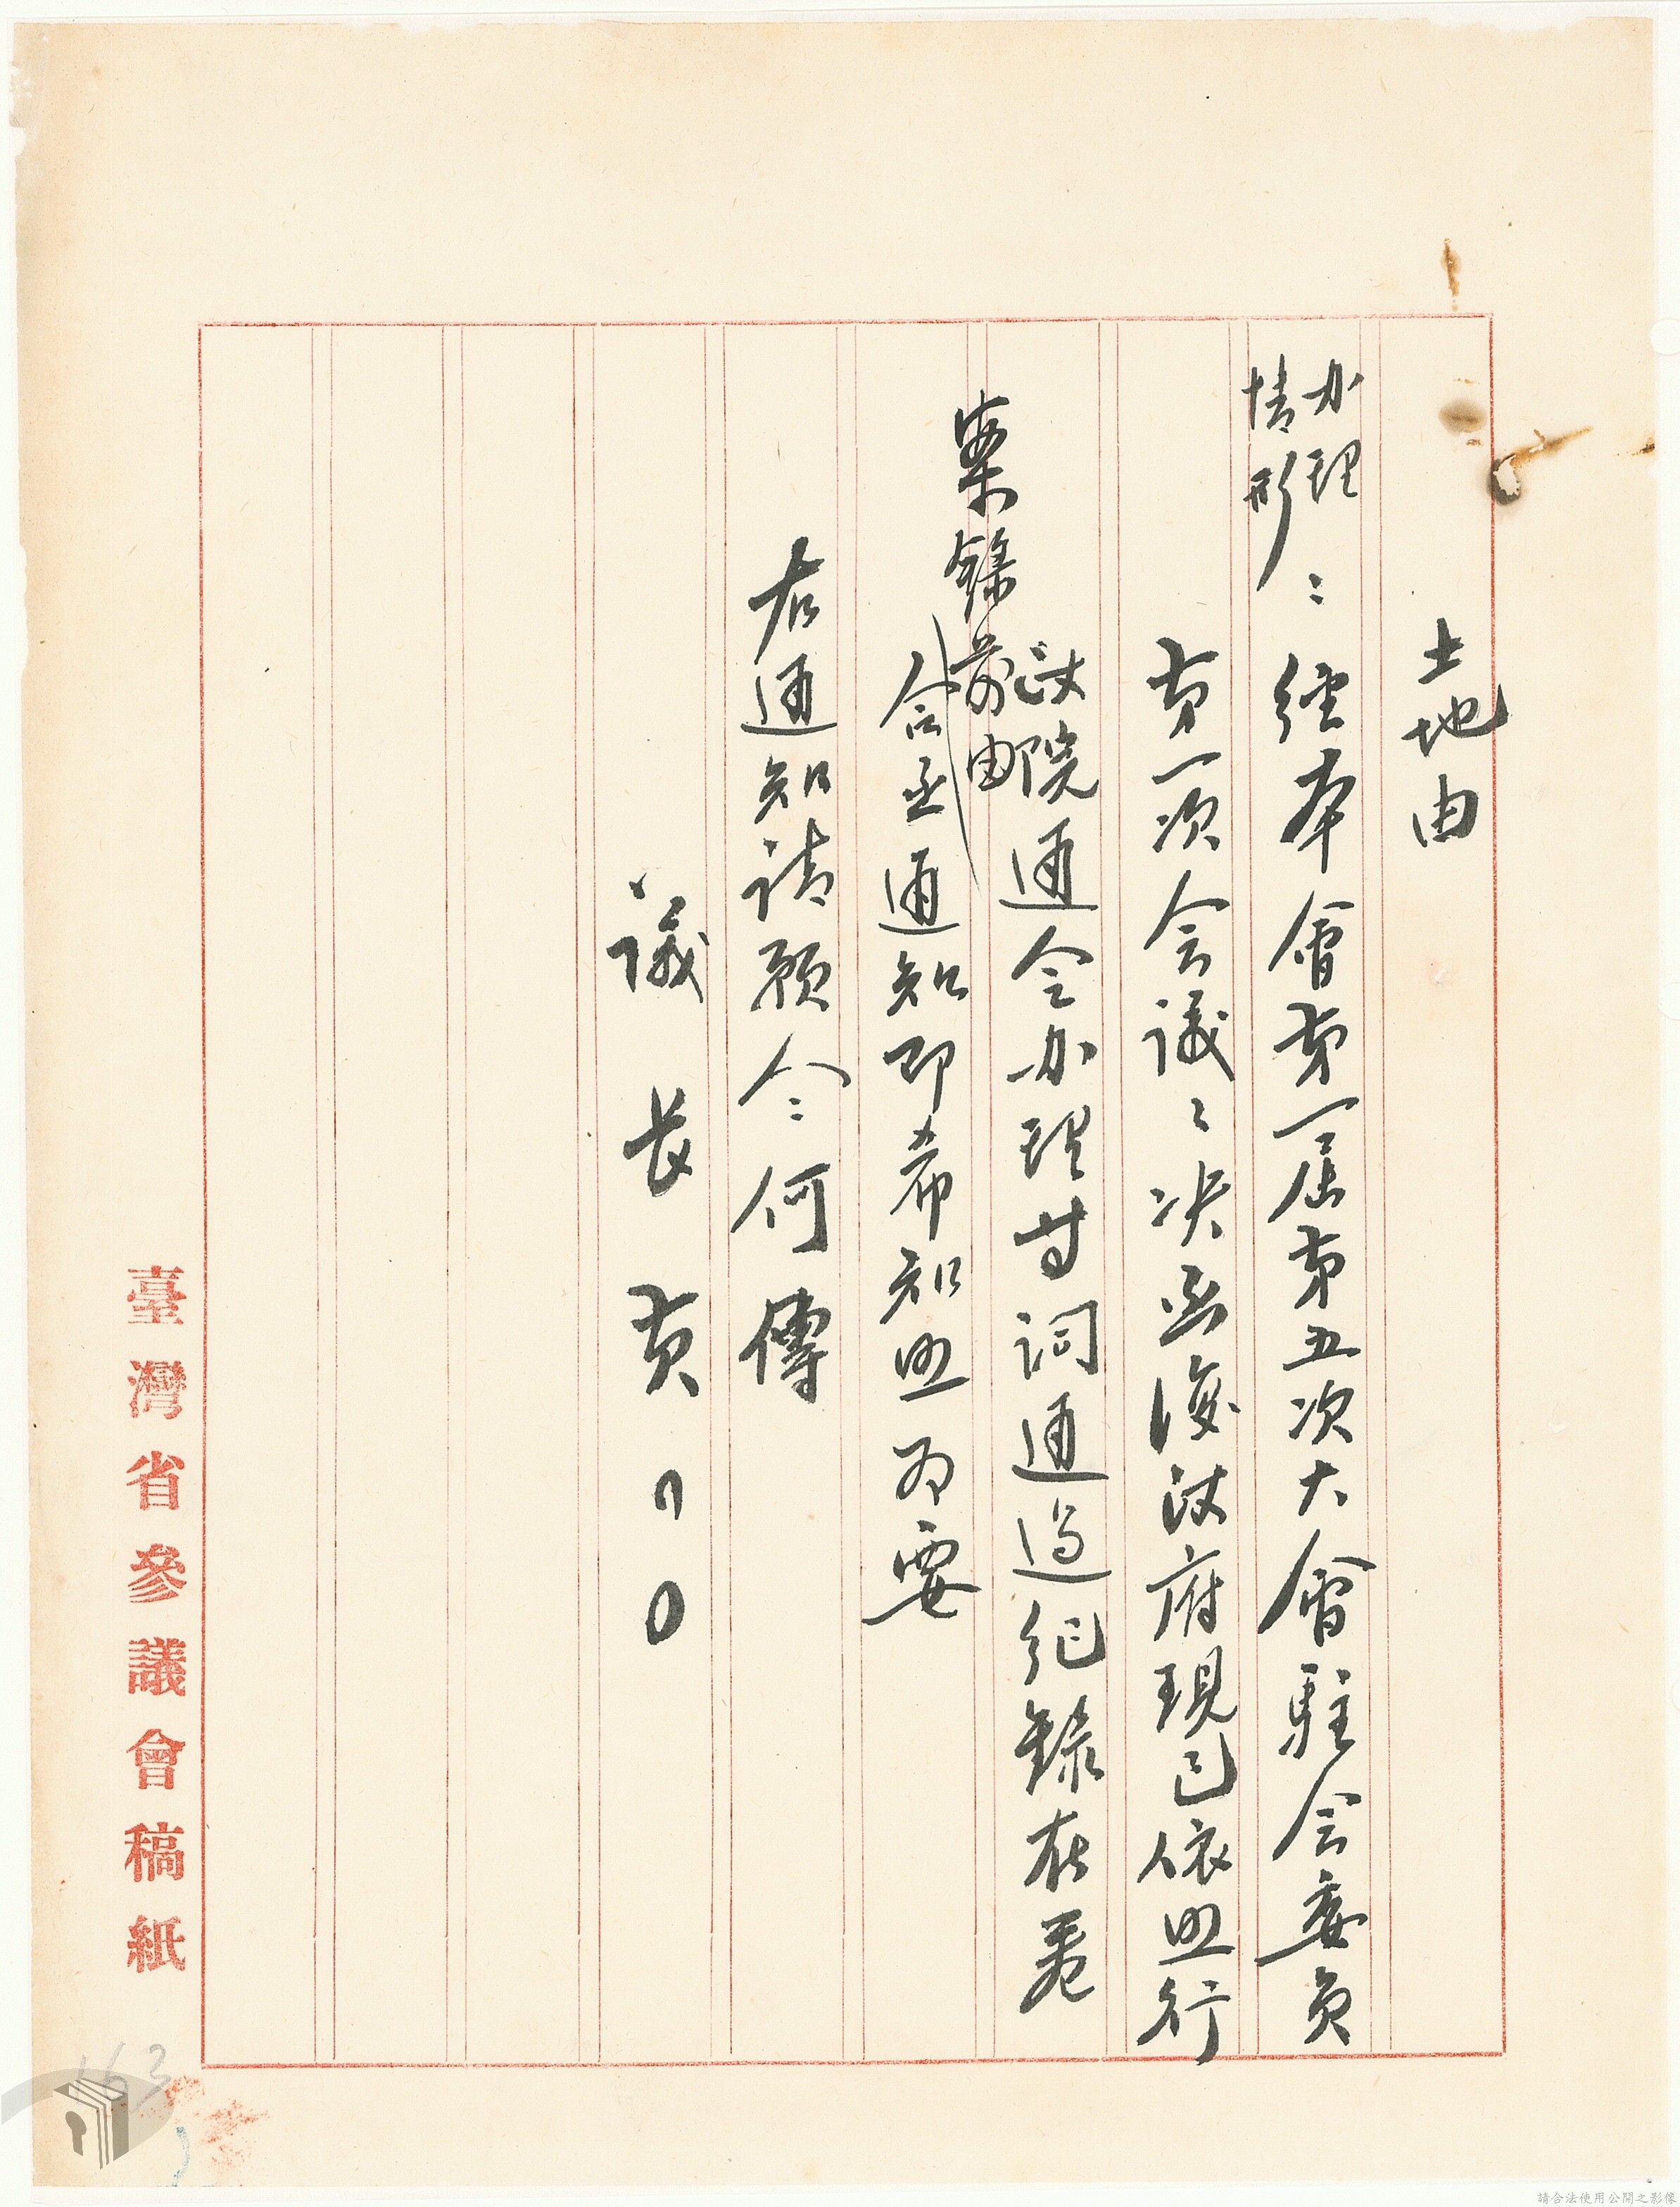 土地由
办理情形：經本會第一屆第五次大會駐会委員
第一次会議〻决函復政府現已依照行
政院通令办理等詞通過紀錄在卷
案錄前由
合函通知即希知照为要
右通知請願人：何傳
議長黄〇〇
臺灣省參議會稿紙
163
請合法使用公開之影像